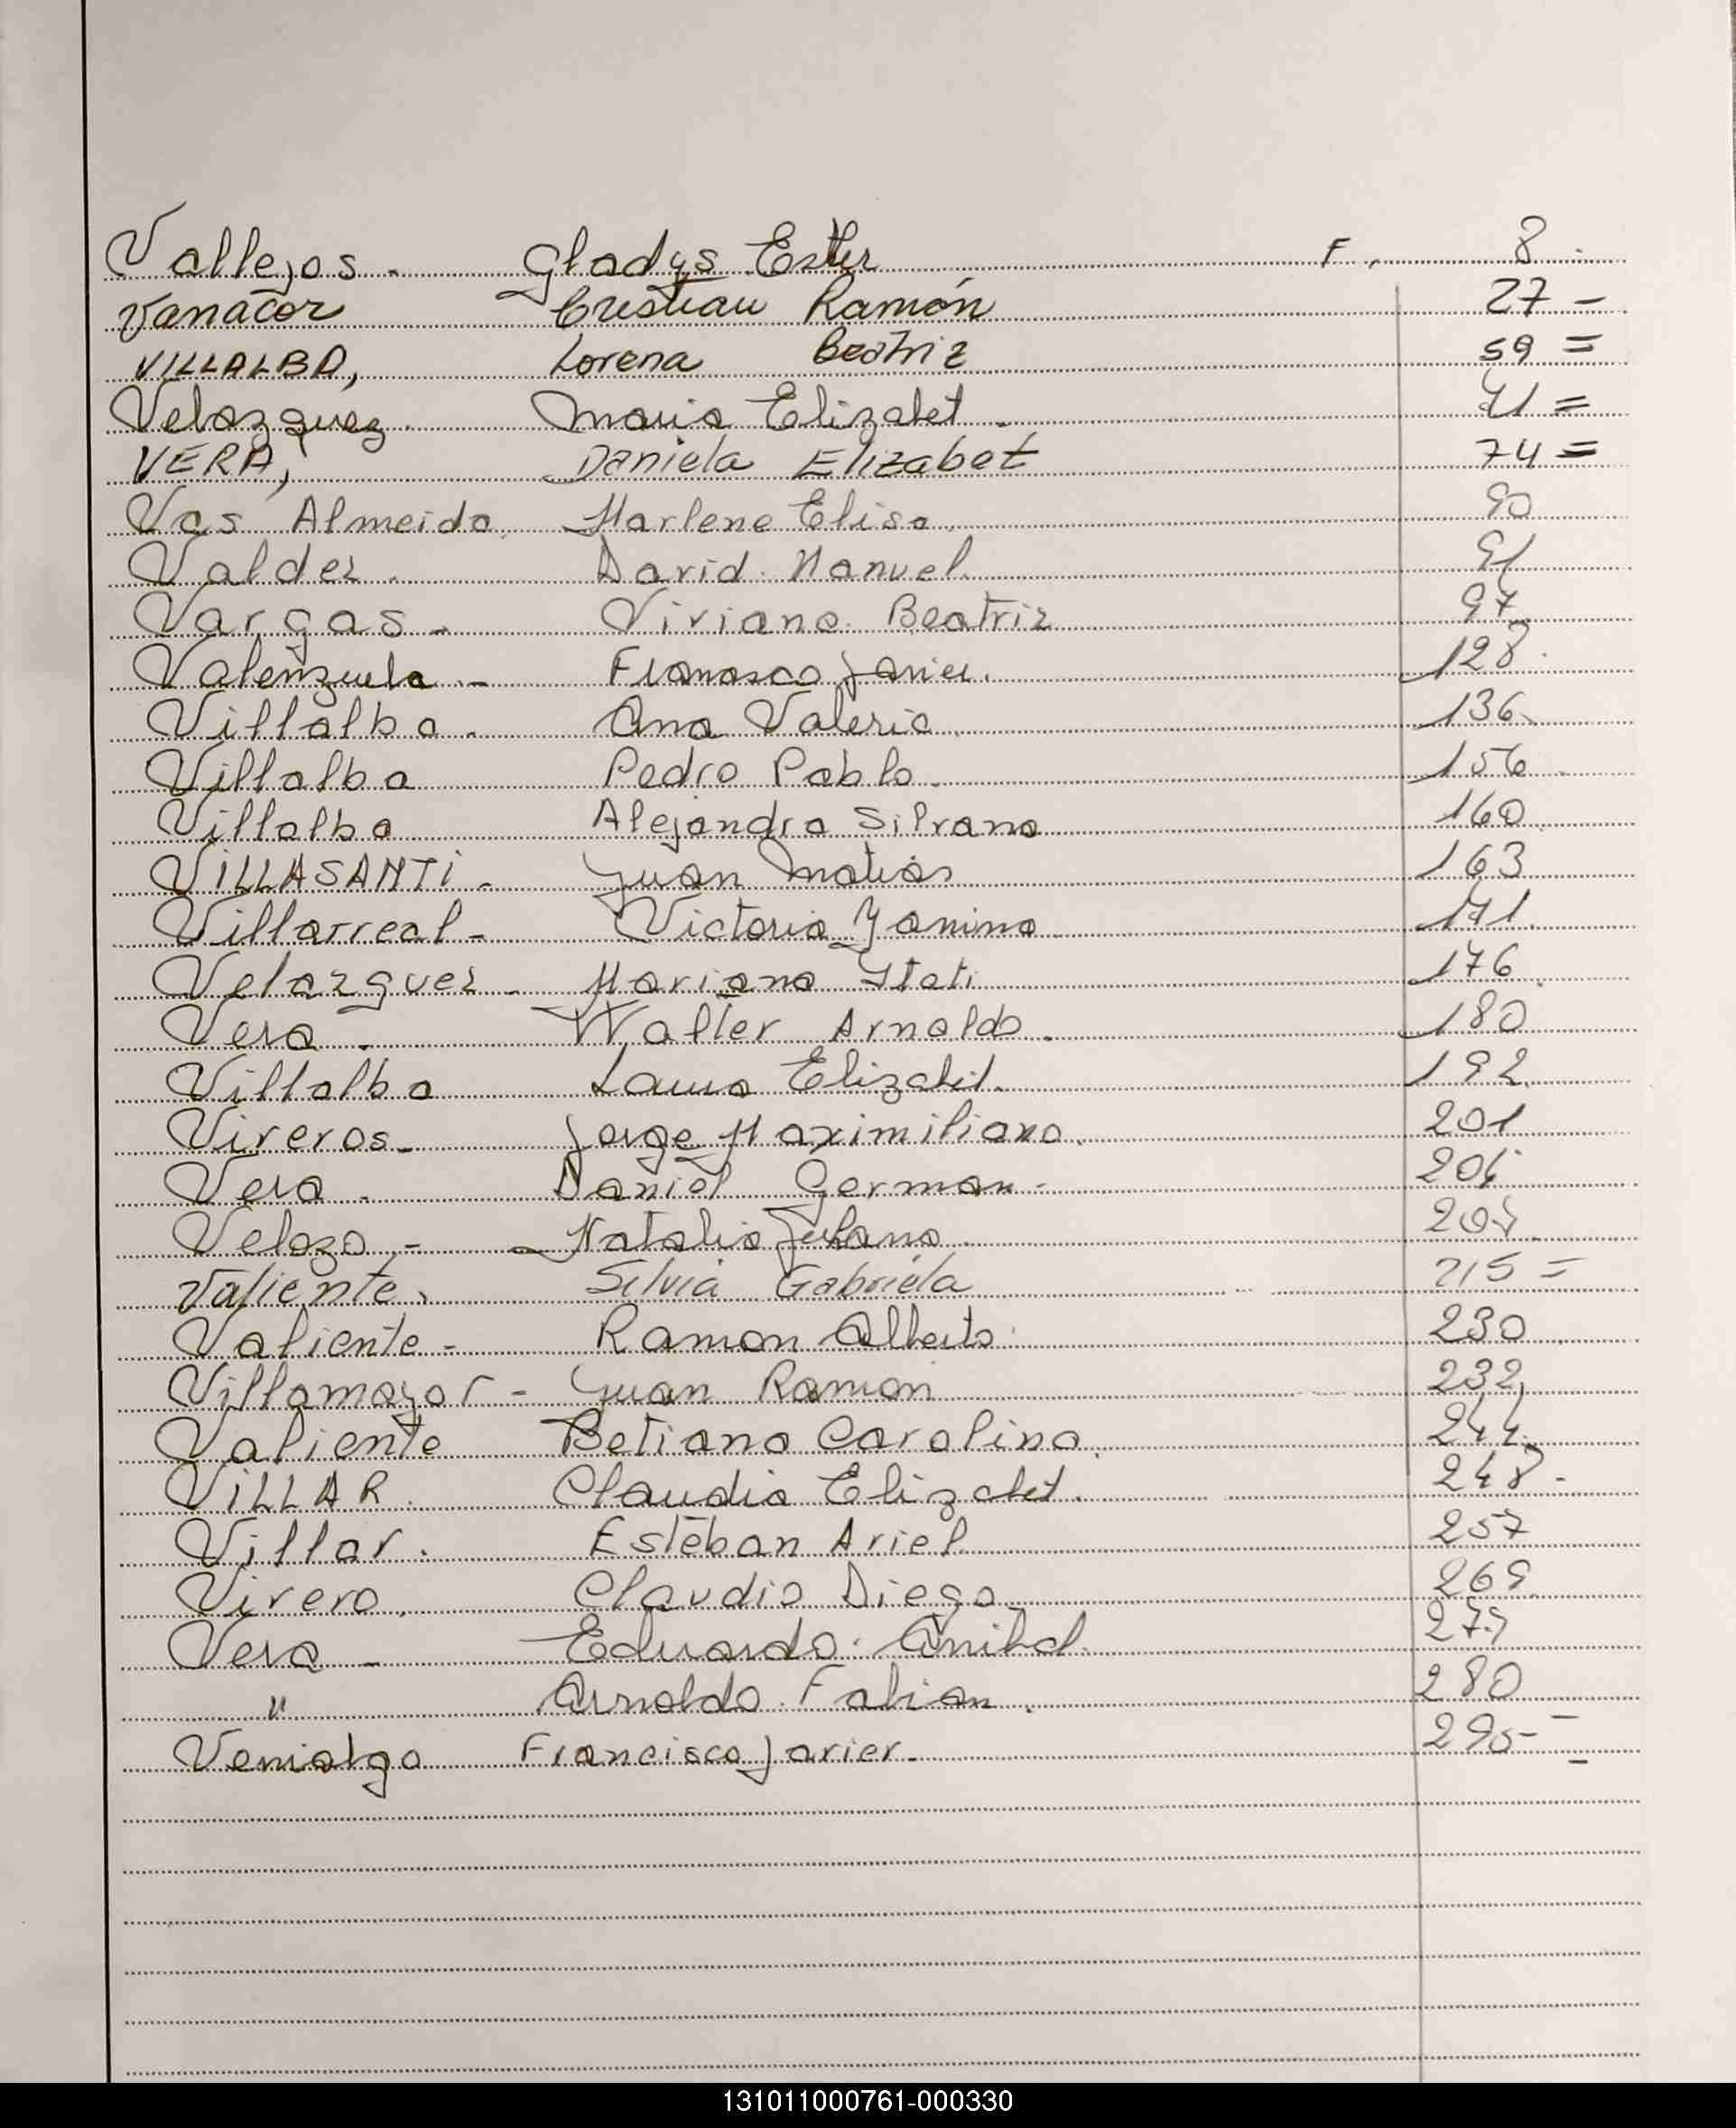 Vallejos. Gladys Ester F. 8.
Vanacor Cristian Ramón 27 -
VILLALBA, Lorena Beatriz 59 =
Velazquez. Maria Elizabet. 71 =
VERA, Daniela Elizabet 74 =
Vas Almeida. Marlene Elisa. 90
Valdez. David Manuel. 91
Vargas - Viviana Beatriz 97
Valenzuela - Francisco Javier. 128.
Villalba. Ana Valeria. 136.
Villalba Pedro Pablo. 156.
Villalba Alejandra Silvana 160.
VILLASANTI - Juan Matias 163
Villarreal - Victoria Yanina 171.
Velazquez - Mariana Itati 176.
Vera. Walter Arnaldo. 180
Villalba Laura Elizabet. 192.
Viveros - Jorge Maximiliano. 201
Vera. Daniel German -
Velozo - Natalia
Valiente, Silvia Gabriela 215 =
Valiente - Ramon Alberto. 230.
Villamayor - Juan Ramon 232,
Valiente Betiana Carolina. 244.
VILLAR. Claudia Elizabet. 248 -
Villar. Esteban Ariel 257
Vivero. Claudio Diego. 269.
Vera - Eduardo Anibal.
" Arnaldo Fabian. 280
Venialgo Francisco Javier - 295 =
131011000761-000330